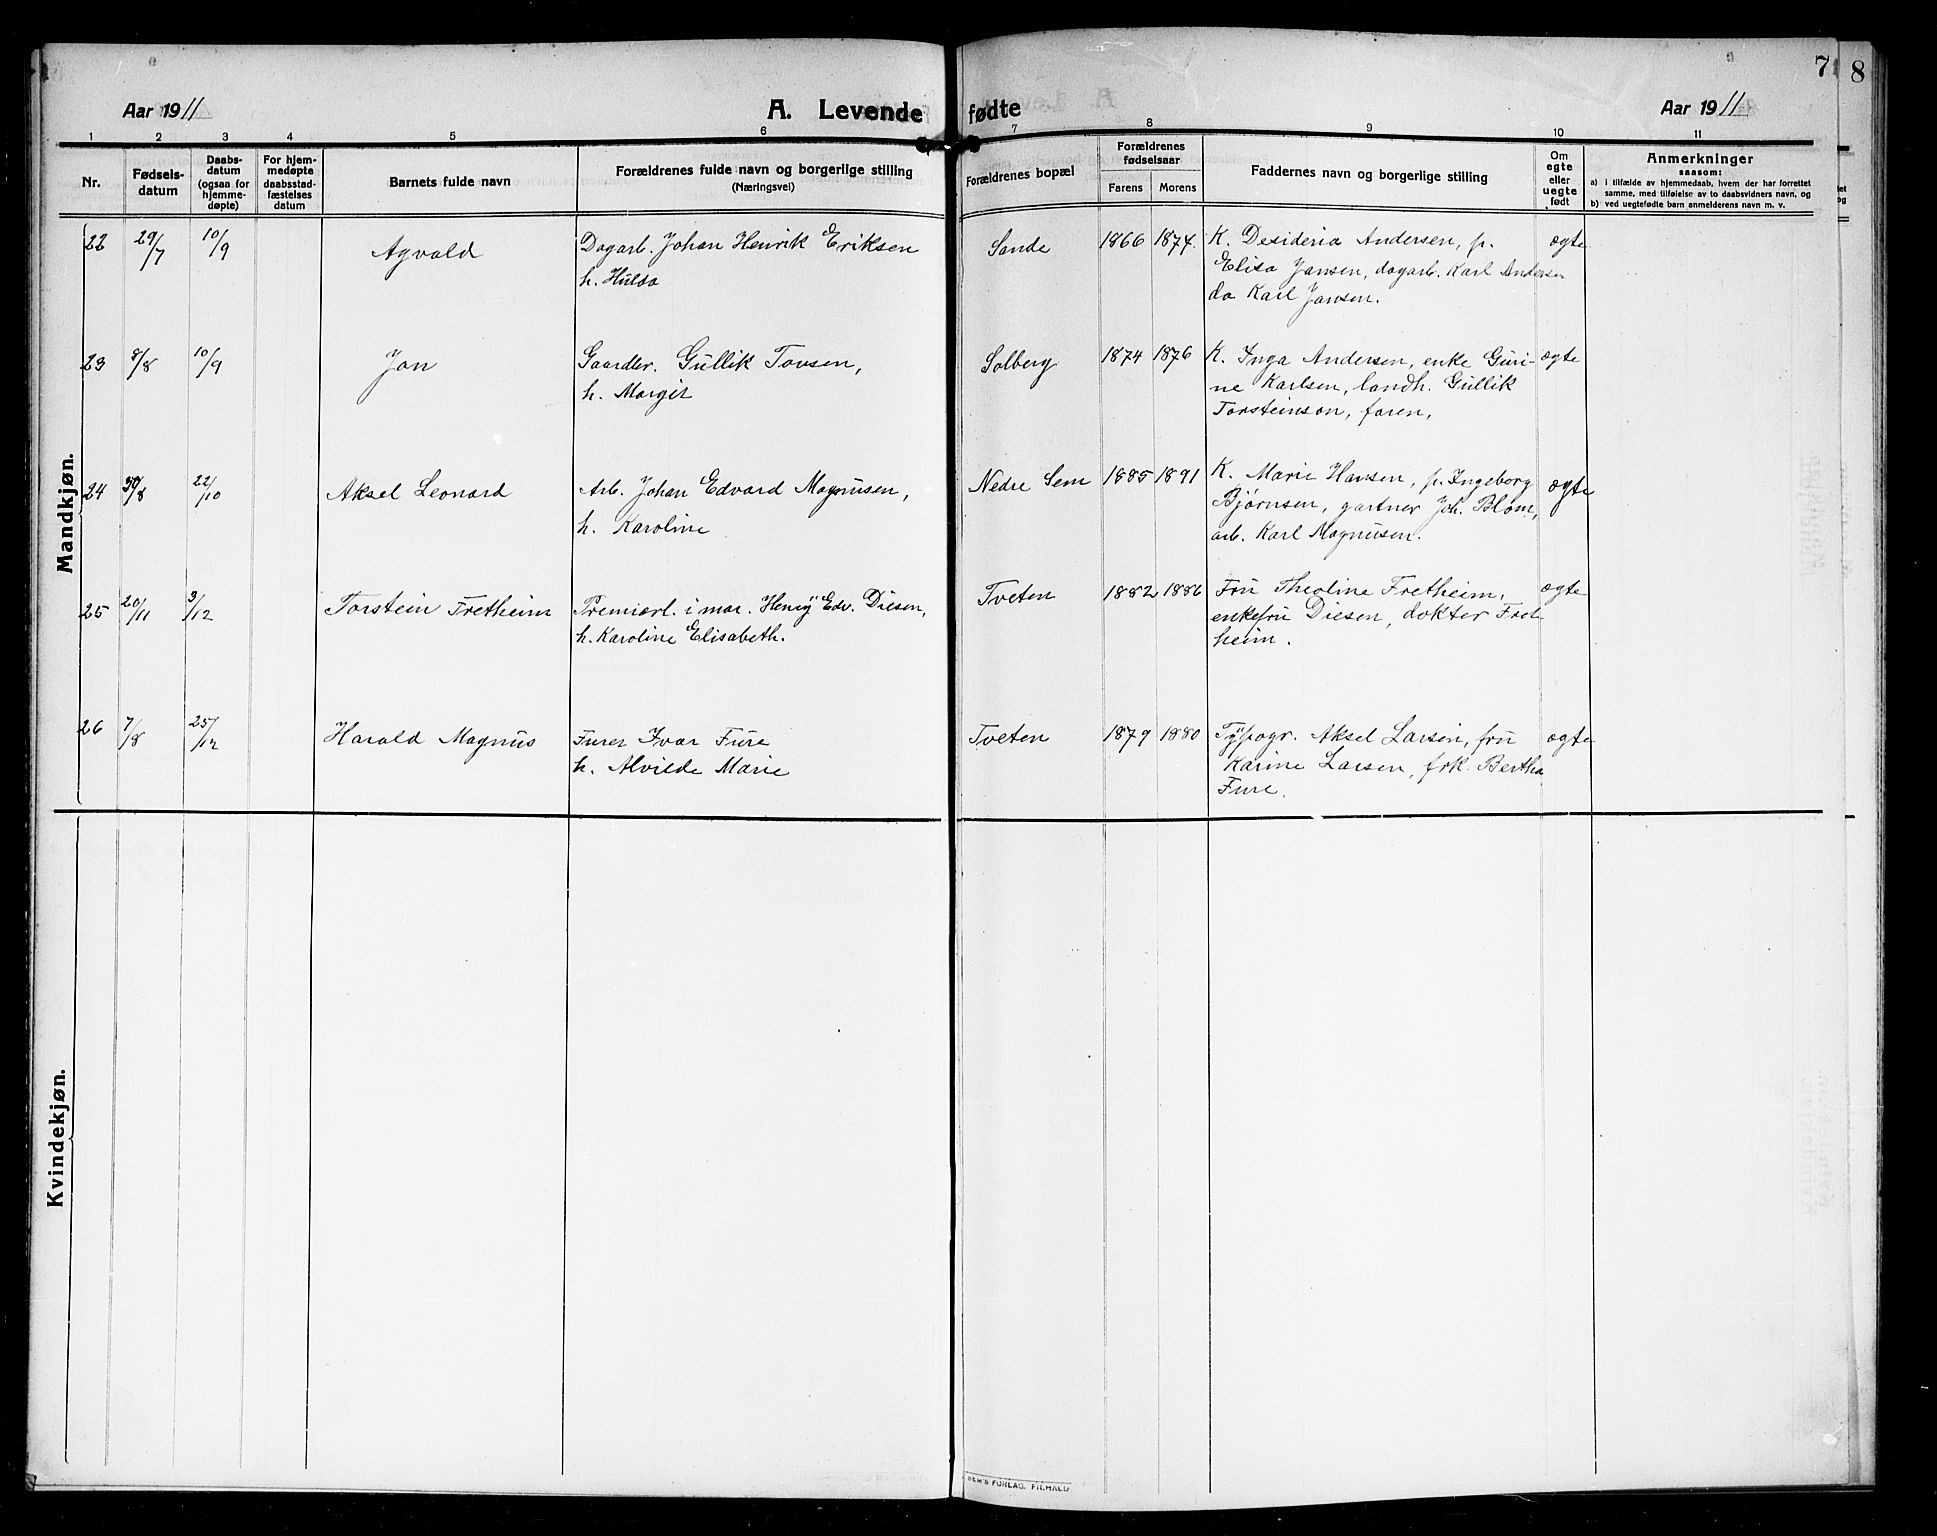 7 8
Aar 1911 A. Levende fødte Aar 1911
1 2 3 4 5 6 7 8 9 10 11
Nr.
Fødsels-
datum
Daabs-
datum
(ogsaa for
hjemme-
døpte)
For hjem-
medøpte
daabsstad-
fæstelses
datum
Barnets fulde navn
Forældrenes fulde navn og borgerlige stilling
(Næringsvei)
Forældrenes bopæl
Forældrenes
fødselsaar
Farens Morens
Faddernes navn og borgerlige stilling
Om
egte
eller
uegte
født
Anmerkninger
saasom:
a) i tilfælde av hjemmedaab, hvem der har forrettet
samme, med tilføielse av to daabsvidners navn, og
b) ved uegtefødte barn anmelderens navn m. v.
Mandkjøn.
22 29/7 10/9 Agvald
Dagarb. Johan Henrik Eriksen
h. Hulda
Sande 1866 1874
K. Desideria Andersen, p.
Elisa Jansen, dagarb. Karl Andersen
do Karl Jansen.
ægte
23 8/8 10/9 Jon
Gaardbr. Gullik Tovsen,
h. Margit
Solberg 1874 1876
K. Inga Andersen, enke Guri-
ne Karlsen, landh. Gullik
Torsteinson, faren,
ægte
24 30/8 22/10 Aksel Leonard
Arb. Johan Edvard Magnusen,
h. Karoline
Nedre Sem 1885 1891
K. Marie Hansen, p. Ingeborg
Bjørnsen, gartner Joh. Blom,
arb. Karl Magnusen.
ægte
25 20/11 3/12 Torstein Fretheim
Premierl. i mar. Henry Edv. Diesen,
h. Karoline Elisabeth.
Tveten 1882 1886
Fru Theoline Fretheim,
enkefru Diesen, dokter Fret-
heim.
ægte
26 7/8 25/12 Harald Magnus
Furer Ivar Fure
h. Alvilde Marie
Tveten 1879 1880
Typogr. Aksel Larsen, fru
Karine Larsen, frk. Bertha
Fure.
ægte
Kvindekjøn.
FORLAG. FR.HALD